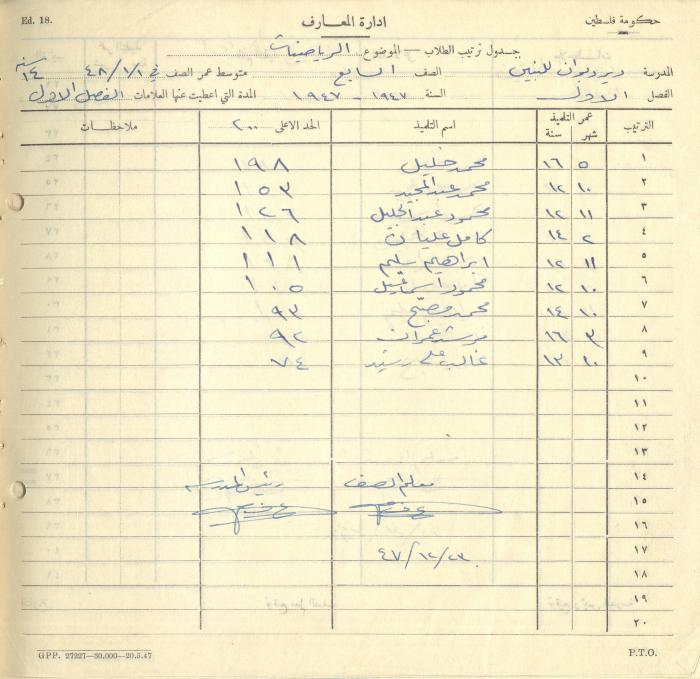 Ed. 18. ادارة المعارف حكومة فلسطين
جدول ترتيب الطلاب — الموضوع الرياضيات
المدرسة ديردبوان للبنين الصف السابع متوسط عمر الصف في ٤٨/١/١ ١٤ سنة
الفصل الاول السنة ١٩٤٧ - ١٩٤٧ المدة التي اعطيت عنها العلامات الفصل الاول
الترتيب عمر التلميذ شهر سنة اسم التلميذ الحد الاعلى ٢٠٠ ملاحظات
١ ٥ ١٦ محمد خليل ١٩٨
٢ ١٠ ١٢ محمد عبد المجيد ١٥٣
٣ ١١ ١٢ محمود عبد الجليل ١٢٦
٤ ٢ ١٤ كامل عليان ١١٨
٥ ١١ ١٢ ابراهيم سليم ١١١
٦ ١٠ ١٢ محمود اسماعيل ١٠٥
٧ ١٠ ١٤ محمد مصبح ٩٣
٨ ٣ ١٦ مرشد عمران ٩٢
٩ ١٠ ١٣ غالب علي رشيد ٧٤
١٠
١١
١٢
١٣
١٤ معلم الصف رئيس المدرسه
١٥
١٦
١٧ ٤٧/١٢/٢٣
١٨
١٩
٢٠
G.P.P. 27227—30.000—20.5.47 P.T.O.